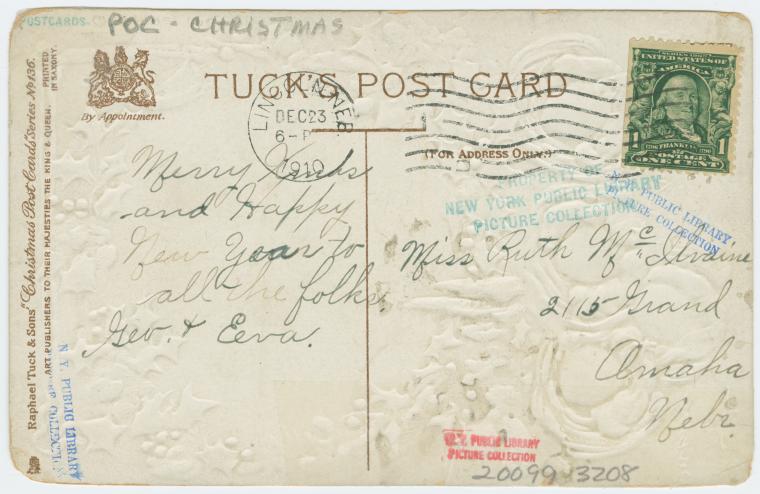 POSTCARDS-C
POC - CHRISTMAS
TUCK'S POST CARD
By Appointment.
(FOR ADDRESS ONLY.)
Raphael Tuck & Sons' "Christmas Post Cards" Series No 136.
ART PUBLISHERS TO THEIR MAJESTIES THE KING & QUEEN.
PRINTED
IN SAXONY.
DEC 23
6-P
1910
SERIES 1902
UNITED STATES OF
AMERICA
1706 FRANKLIN 1790
1 POSTAGE 1
ONE CENT
Merry Xmas
and Happy
New Year to
all the folks.
Geo. & Eeva.
PROPERTY OF
NEW YORK PUBLIC LIBRARY
PICTURE COLLECTION
N. Y. PUBLIC LIBRARY
PICTURE COLLECTION
Miss Ruth McIlvaine
2115 Grand
Omaha
Nebr.
N. Y. PUBLIC LIBRARY
PICTURE COLLECTION
N. Y. PUBLIC LIBRARY
PICTURE COLLECTION
20099 3208